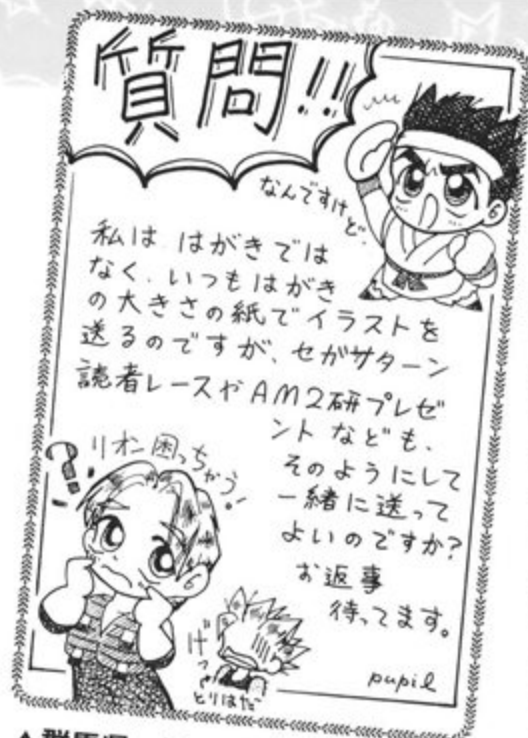 質問!!
なんですけど、
私は、はがきでは
なく、いつもはがき
の大きさの紙でイラストを
送るのですが、セガサターン
読者レースやAM2研プレゼ
ントなども、
そのようにして
一緒に送って
よいのですか?
お返事
待ってます。
pupil
?
リオン困っちゃう!
げっ
とりはだ